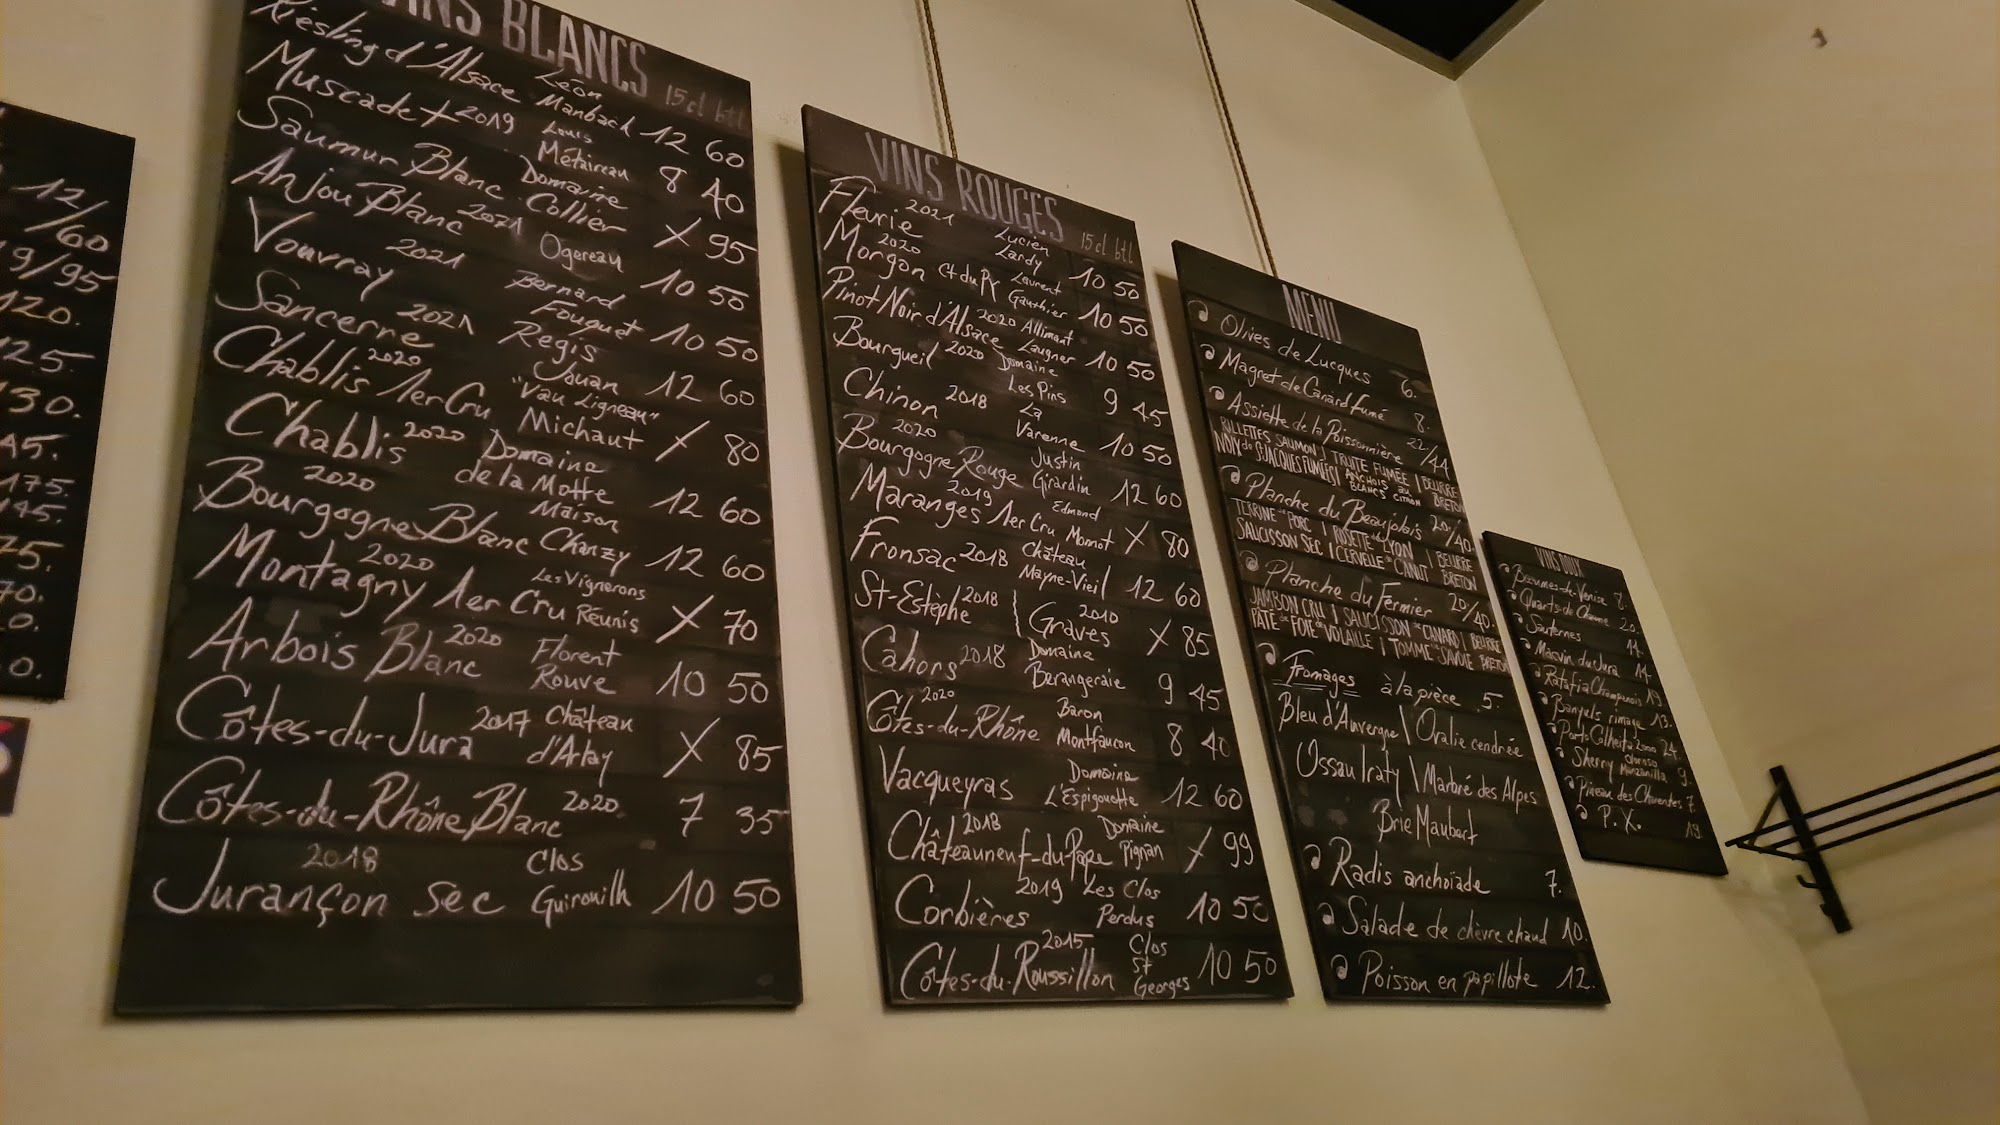 12/
/60
9/95
120.
125.
130.
45.
175.
145.
75.
70.
0.
0.
VINS BLANCS 15cl btl
Riesling d'Alsace Léon Manbach 12 60
Muscadet 2019 Louis Métaireau 8 40
Saumur Blanc Domaine Collier X 95
Anjou Blanc 2021 Ogereau 10 50
Vouvray 2021 Bernard Fouquet 10 50
Sancerre 2021 Regis Jouan 12 60
Chablis 1er Cru 2020 "Vau Ligneau" Michaut X 80
Chablis 2020 Domaine de la Motte 12 60
Bourgogne Blanc 2020 Maison Chanzy 12 60
Montagny 1er Cru 2020 Les Vignerons Réunis X 70
Arbois Blanc 2020 Florent Rouve 10 50
Côtes-du-Jura 2017 Château d'Arlay X 85
Côtes-du-Rhône Blanc 2020 7 35
Jurançon sec 2018 Clos Guirouilh 10 50
VINS ROUGES 15cl btl
Fleurie 2021 Lucien Lardy 10 50
Morgon 2020 Ct du Py Laurent Gauthier 10 50
Pinot Noir d'Alsace 2020 Allimant Laugner 10 50
Bourgueil 2020 Domaine Les Pins 9 45
Chinon 2018 La Varenne 10 50
Bourgogne Rouge 2020 Justin Girardin 12 60
Maranges 1er Cru 2019 Edmond Monnot X 80
Fronsac 2018 Château Mayne-Vieil 12 60
St-Estèphe 2018 | Graves 2010 X 85
Cahors 2018 Domaine Berangeraie 9 45
Côtes-du-Rhône 2020 Baron Montfaucon 8 40
Vacqueyras Domaine L'Espigouette 12 60
Châteauneuf-du-Pape 2018 Domaine Pignan X 99
Corbières 2019 Les Clos Perdus 10 50
Côtes-du-Roussillon 2015 Clos St Georges 10 50
MENU
Olives de Lucques 6.
Magret de Canard fumé 8.
Assiette de la Poissonnière 22/44
RILLETTES SAUMON | TRUITE FUMÉE | BEURRE
NOIX de ST JACQUES FUMÉES | ANCHOIS au BLANCS CITRON BRETON
Planche du Beaujolais 20/40.
TERRINE de PORC | ROSETTE de LYON | BEURRE
SAUCISSON SEC | CERVELLE de CANUT BRETON
Planche du Fermier 20/40.
JAMBON CRU | SAUCISSON de CANARD | BEURRE
PÂTÉ de FOIE de VOLAILLE | TOMME de SAVOIE BRETON
Fromages à la pièce 5.
Bleu d'Auvergne | Ovalie cendrée
Ossau Iraty | Marbré des Alpes
Brie Maubert
Radis anchoïade 7.
Salade de chèvre chaud 10.
Poisson en papillote 12.
VINS DOUX
Beaumes-de-Venise 8.
Quarts-de-Chaume 20.
Sauternes 11.
Macvin du Jura 14.
Ratafia Champenois 19.
Banyuls rimage 13.
Porto Colheita 2000 24.
Sherry oloroso Manzanilla 9.
Pineau des Charentes 7.
P.X. 19.